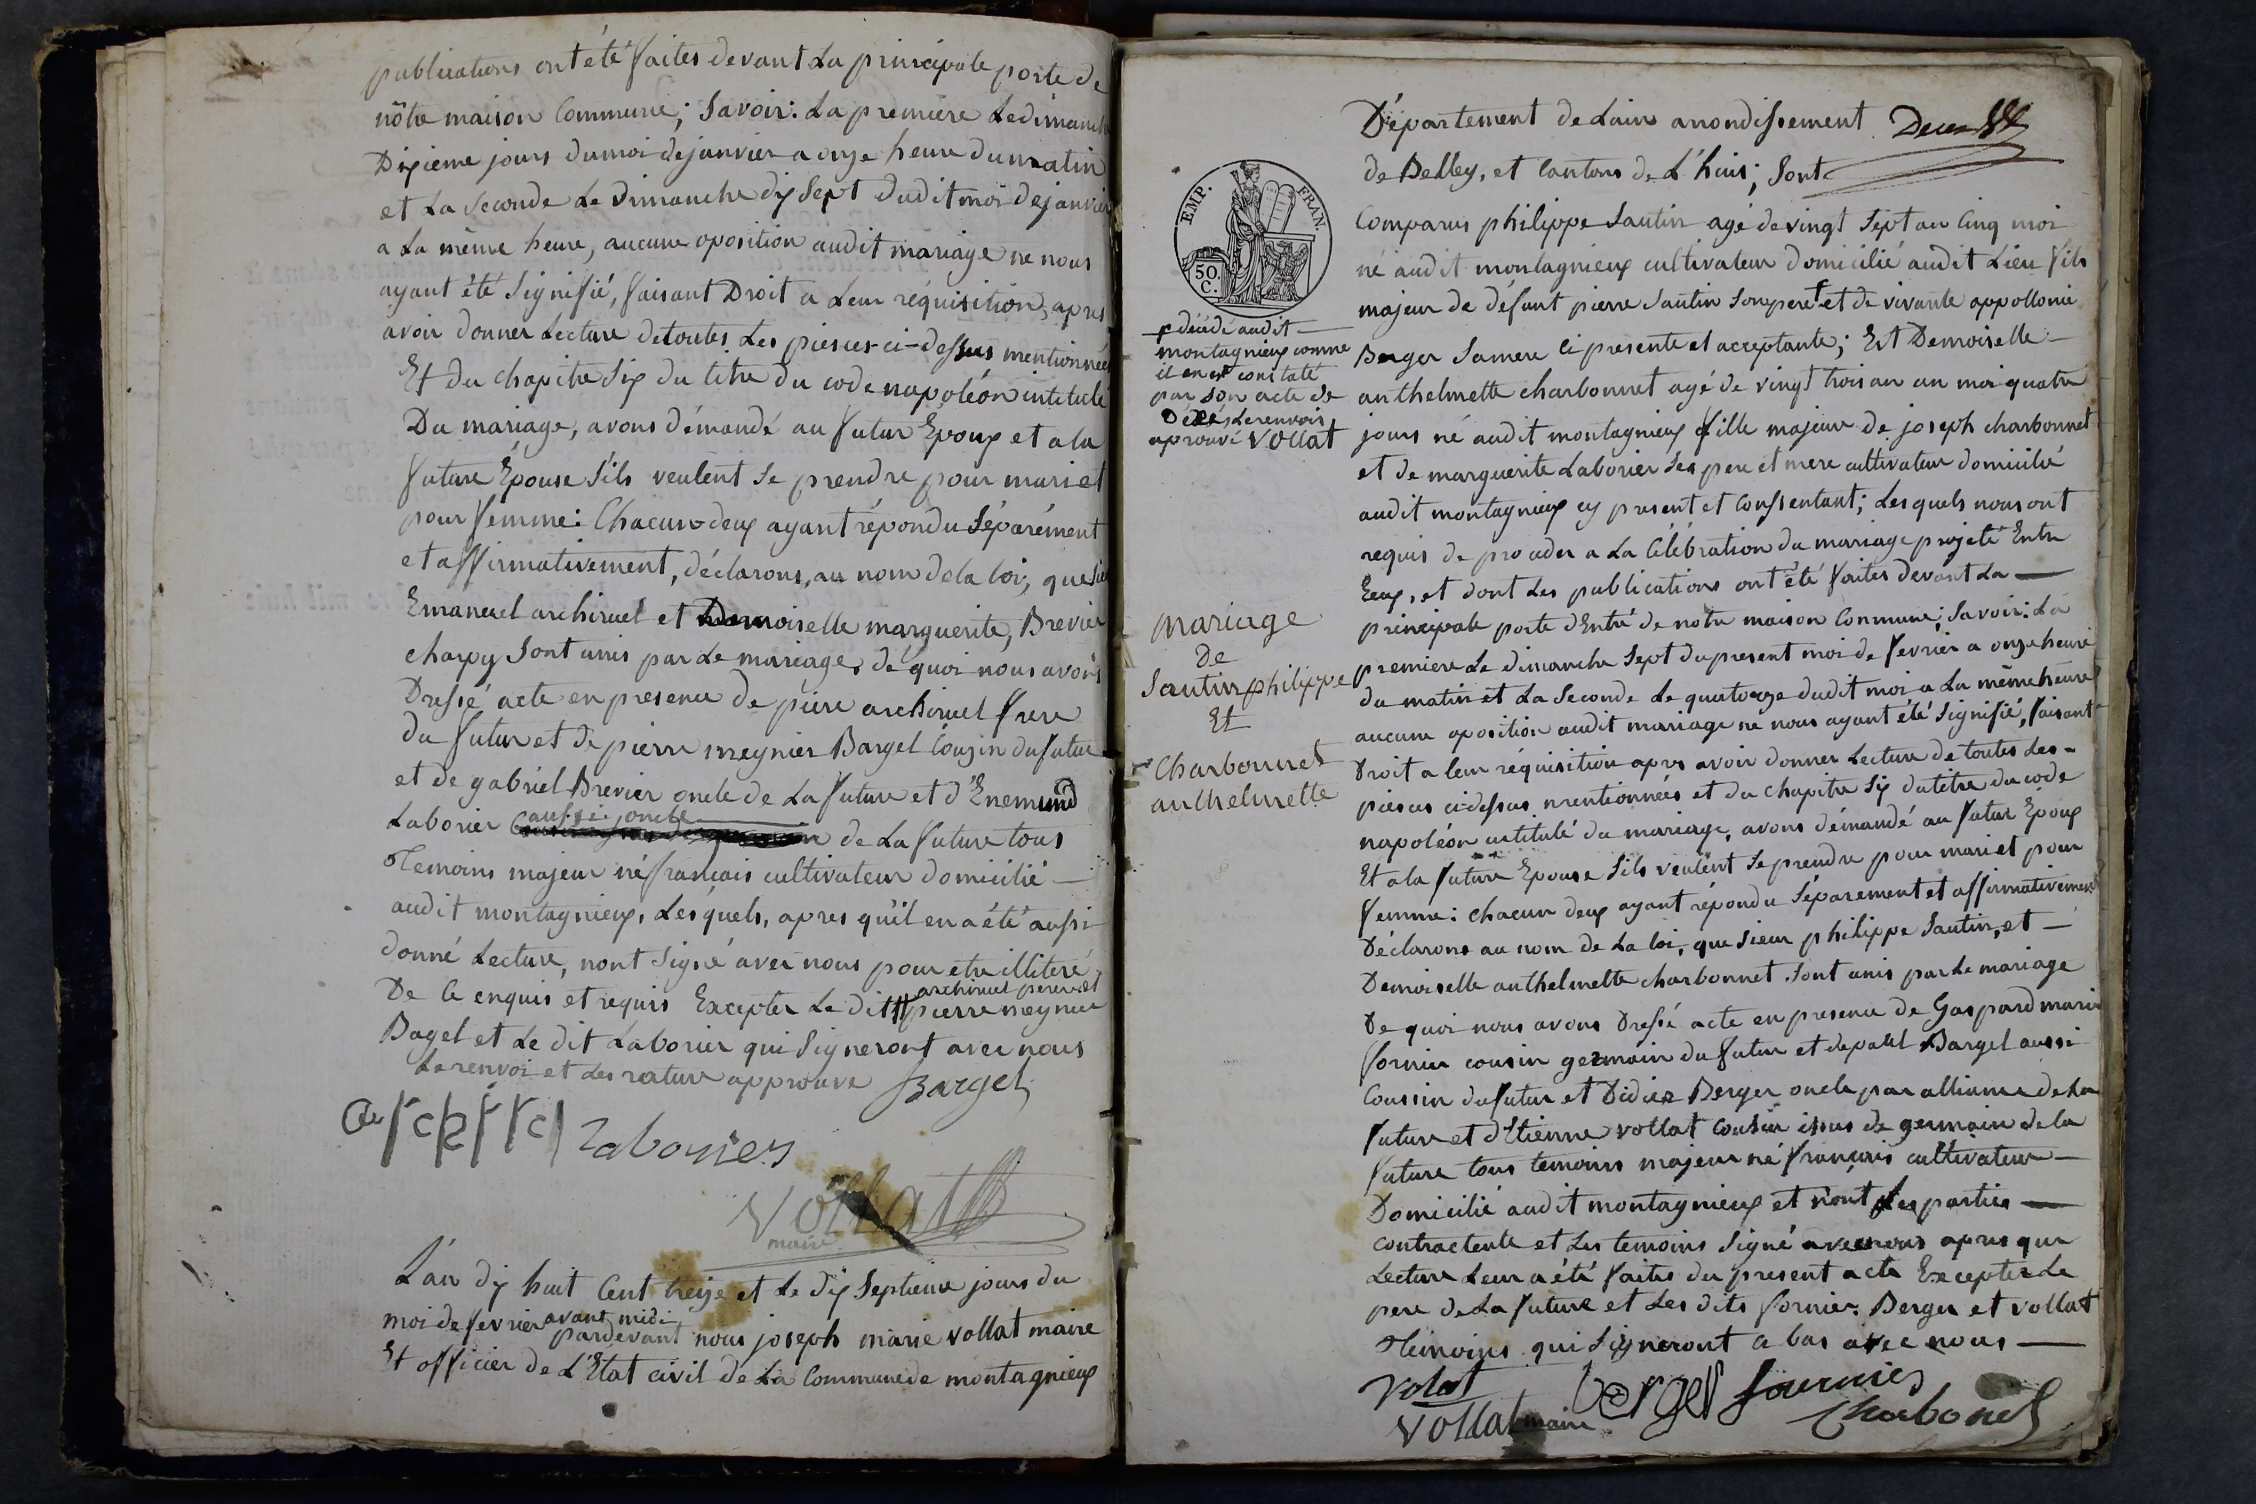 publications ont été faites devant La principale porte de
nôtre maison Commune; Savoir: La première Le dimanche
Dixieme jours du moi de janvier a onze heure du matin
et La Seconde Le Dimanche dix Sept dudit moi de janvier
a La même heure, aucune oposition audit mariage ne nous
ayant été Signifié, faisant Droit a Leur réquisition, apres
avoir donner Lecture de toutes Les piesces ci-dessus mentionnées
Et du chapitre Six du titre du code napoléon intitulé
Du mariage, avons démandé au futur Époux et a la
future Épouse S'ils veulent Se prendre pour mari et
pour femme: Chacun deux ayant répondu Séparément
et affirmativement, déclarons, au nom de la loi, que Sieur
Emanuel archiruel et Demoiselle marguerite, Brevier
charpy Sont unis par Le mariage, de quoi nous avons
Dressé acte en presence de piere archiruel frere
du futur et de pierre meynier Bargel Cousin du futur
et de gabriel Brevier oncle de La future et d'Enemund
Laborier aussi, oncle de La future tous
Temoins majeur né francais cultivateur domicilié
audit montagnieux, Lesquels, apres qu'il en a été aussi
donné Lecture, nont Signé avec nous pour etre illiteré
De Ce enquis et requis Excepter Le dit archiruel pere et pierre meynier
Bagel et Le dit Laborier qui Signeront avec nous
Le renvoi et Les rature approuve Bargel
Laborier
Vollat
maire
L'an dix huit Cent treize et Le dix Septieme jours du
moi de fevrier avant midi pardevant nous joseph marie vollat maire
Et officier de L'Etat civil de La Commune de montagnieux
Département de Lain arrondissement
de Belley, et Cantons de L'huis; Sont
EMP. FRAN.
50.
C.
Comparus philippe Sautin agé de vingt Sept an Cinq moi
né audit montagnieux cultivateur domicilié audit Lieu fils
majeur de défunt pierre Sautin Son pere + et de vivante appollonie
Berger Sa mere Ci presente et acceptante; Et Demoiselle
anthelmette charbonnet agé de vingt trois an un moi quatre
jours né audit montagnieux fille majeure de joseph charbonnet
et de marguerite Laborier Ses pere et mere cultivateur domicilié
audit montagnieux cy present et Consentant; Lesquels nous ont
requis de proceder a La Célébration du mariage projeté Entre
Eeux, et dont Les publications ont été faites devant La
principale porte d'Entré de notre maison Commune; Savoir: La
premiere Le dimanche Sept du present moi de fevrier a onze heure
du matin et La Seconde Le quatorze dudit moi a La même heure
aucune oposition audit mariage ne nous ayant été Signifié, faisant
Droit a leur réquisition apres avoir donner Lecture de toutes Les
piesces ci-dessus mentionnées et du chapitre Six du titre du code
napoléon intitulé du mariage, avons démandé au futur Époux
Et a la future Epouse S'ils veulent Se prendre pour mari et pour
femme: chacun deux ayant répondu Séparement et affirmativement
Déclarons au nom de La loi, que Sieur philippe Sautin, et
Demoiselle anthelmette charbonnet. Sont unis par Le mariage
De quoi nous avons Dressé acte en presence de Gaspard marie
fornier cousin germain du futur et de Bargel aussi
Coussin du futur et Didier Berger oncle par alliance de La
future et d'Etienne vollat Cousin issus de germain de la
future tous temoins majeur né francais cultivateur
Domicilié audit montagnieux et n'ont Les parties
contractente et Les temoins Signé avec nous apres que
Lecture Leur a été faites du present acte Excepter Le
pere de La future et Les dits fornier. Berger et vollat
Témoins qui Signeront a bas avec nous
volat berger fournier
Vollat maire Charbonet
+ décédé audit
montagnieux comme
il en est constaté
par Son acte de
Décès Le renvois
aprouvé Vollat
Mariage
De
Sautin philippe
Et
Charbonnet
anthelmette